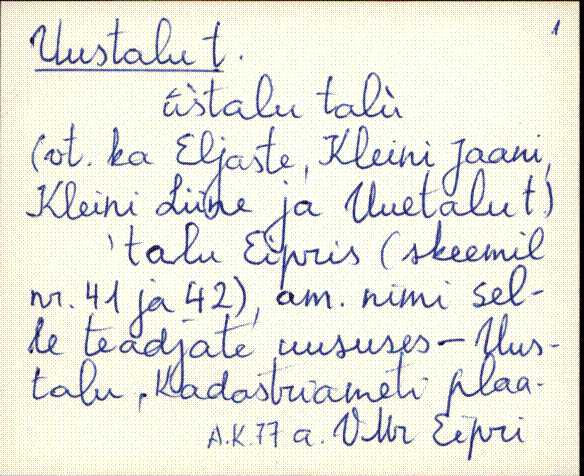 1
Uustalu t.
ũstalu talù
(vt. ka Eljaste, Kleini Jaani,
Kleini Liine ja Uuetalu t.)
'talu Eipris (skeemil
nr. 41 ja 42), am. nimi sel-
le teadjate uususes – Uus-
talu, Kadastriameti plaa-
A.K. 77 a. VMr Eipri